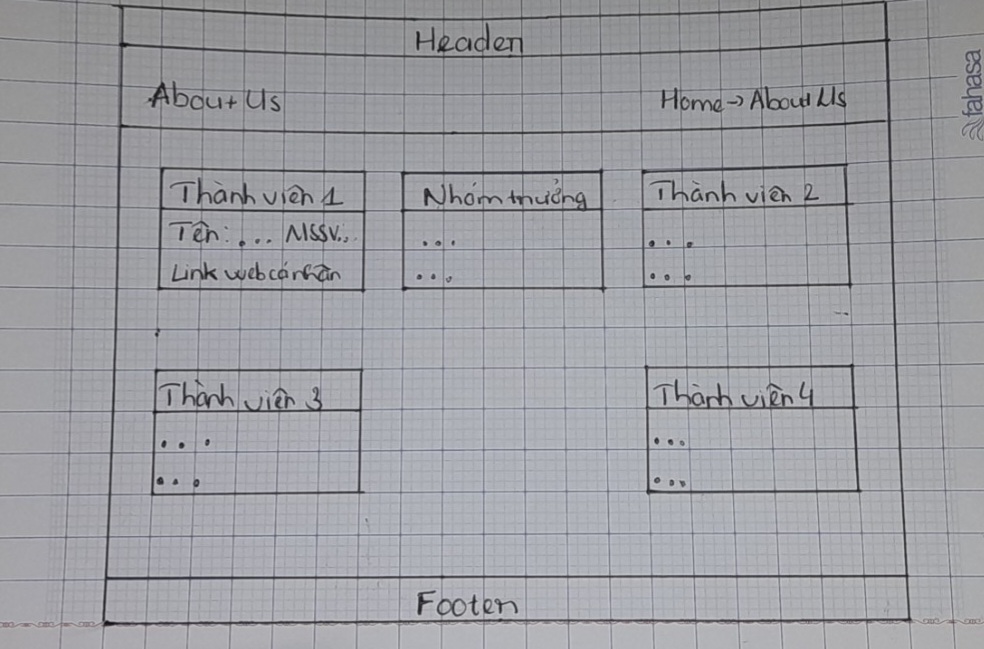 Header
About Us
Home -> About Us
Thành viên 1
Tên: ... MSSV..
Link web cá nhân
Nhóm trưởng
...
...
Thành viên 2
...
...
Thành viên 3
...
...
Thành viên 4
...
...
Footer
fahasa